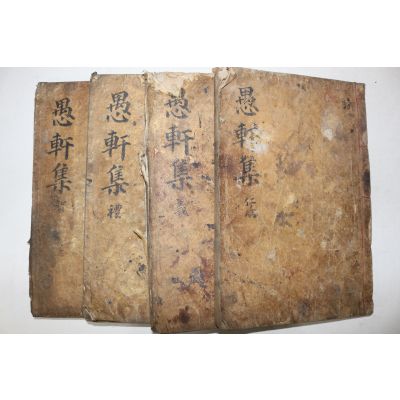 愚軒集 仁
愚軒集 義
愚軒集 禮
愚軒集 智